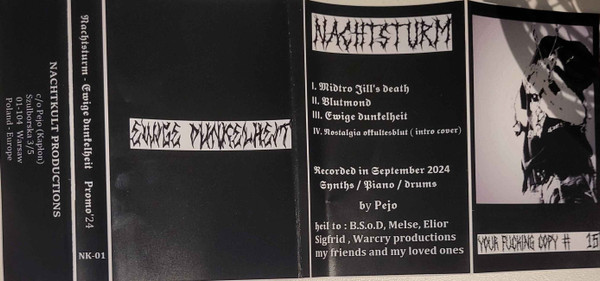 NACHTKULT PRODUCTIONS
c/o Pejo (Kaplon)
Szulborska 3/5
01-104 Warsaw
Poland - Europe
Nachtsturm - Ewige dunkelheit Promo'24
NK-01
EWIGE DUNKELHEIT
NACHTSTURM
I. Midtro Jill's death
II. Blutmond
III. Ewige dunkelheit
IV. Nostalgia okkultesblut ( intro cover)
Recorded in September 2024
Synths / Piano / drums
by Pejo
heil to : B.S.o.D, Melse, Elior
Sigfrid , Warcry productions
my friends and my loved ones
YOUR FUCKING COPY # 15